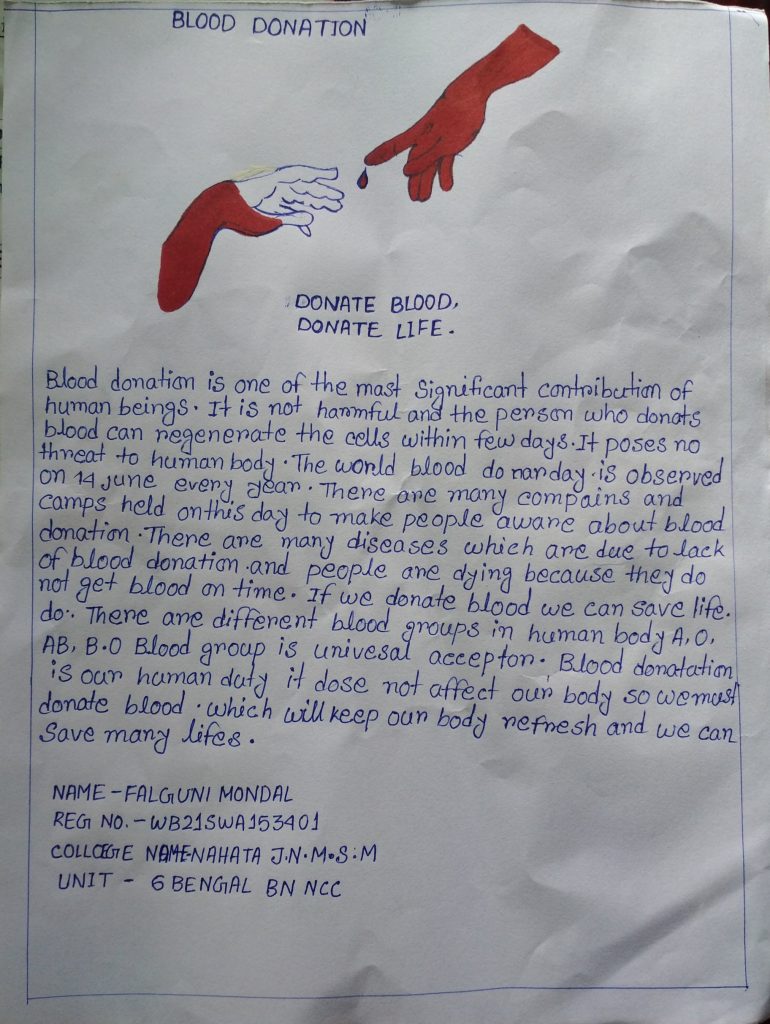 BLOOD DONATION
DONATE BLOOD,
DONATE LIFE.
Blood donation is one of the mast significant contribution of
human beings. It is not harmful and the person who donats
blood can regenerate the cells within few days. It poses no
threat to human body. The world blood do nar day is observed
on 14 June every year. There are many compains and
camps held on this day to make people aware about blood
donation. There are many diseases which are due to lack
of blood donation and people are dying because they do
not get blood on time. If we donate blood we can save life.
do. There are different blood groups in human body A, O,
AB, B. O Blood group is univesal acceptor. Blood donatation
is our human duty it dose not affect our body so we must
donate blood. which will keep our body refresh and we can
save many lifes.
NAME - FALGUNI MONDAL
REG NO. - WB21SWA153401
COLLOEGE NAME-NAHATA J.N.M.S.M
UNIT - 6 BENGAL BN NCC